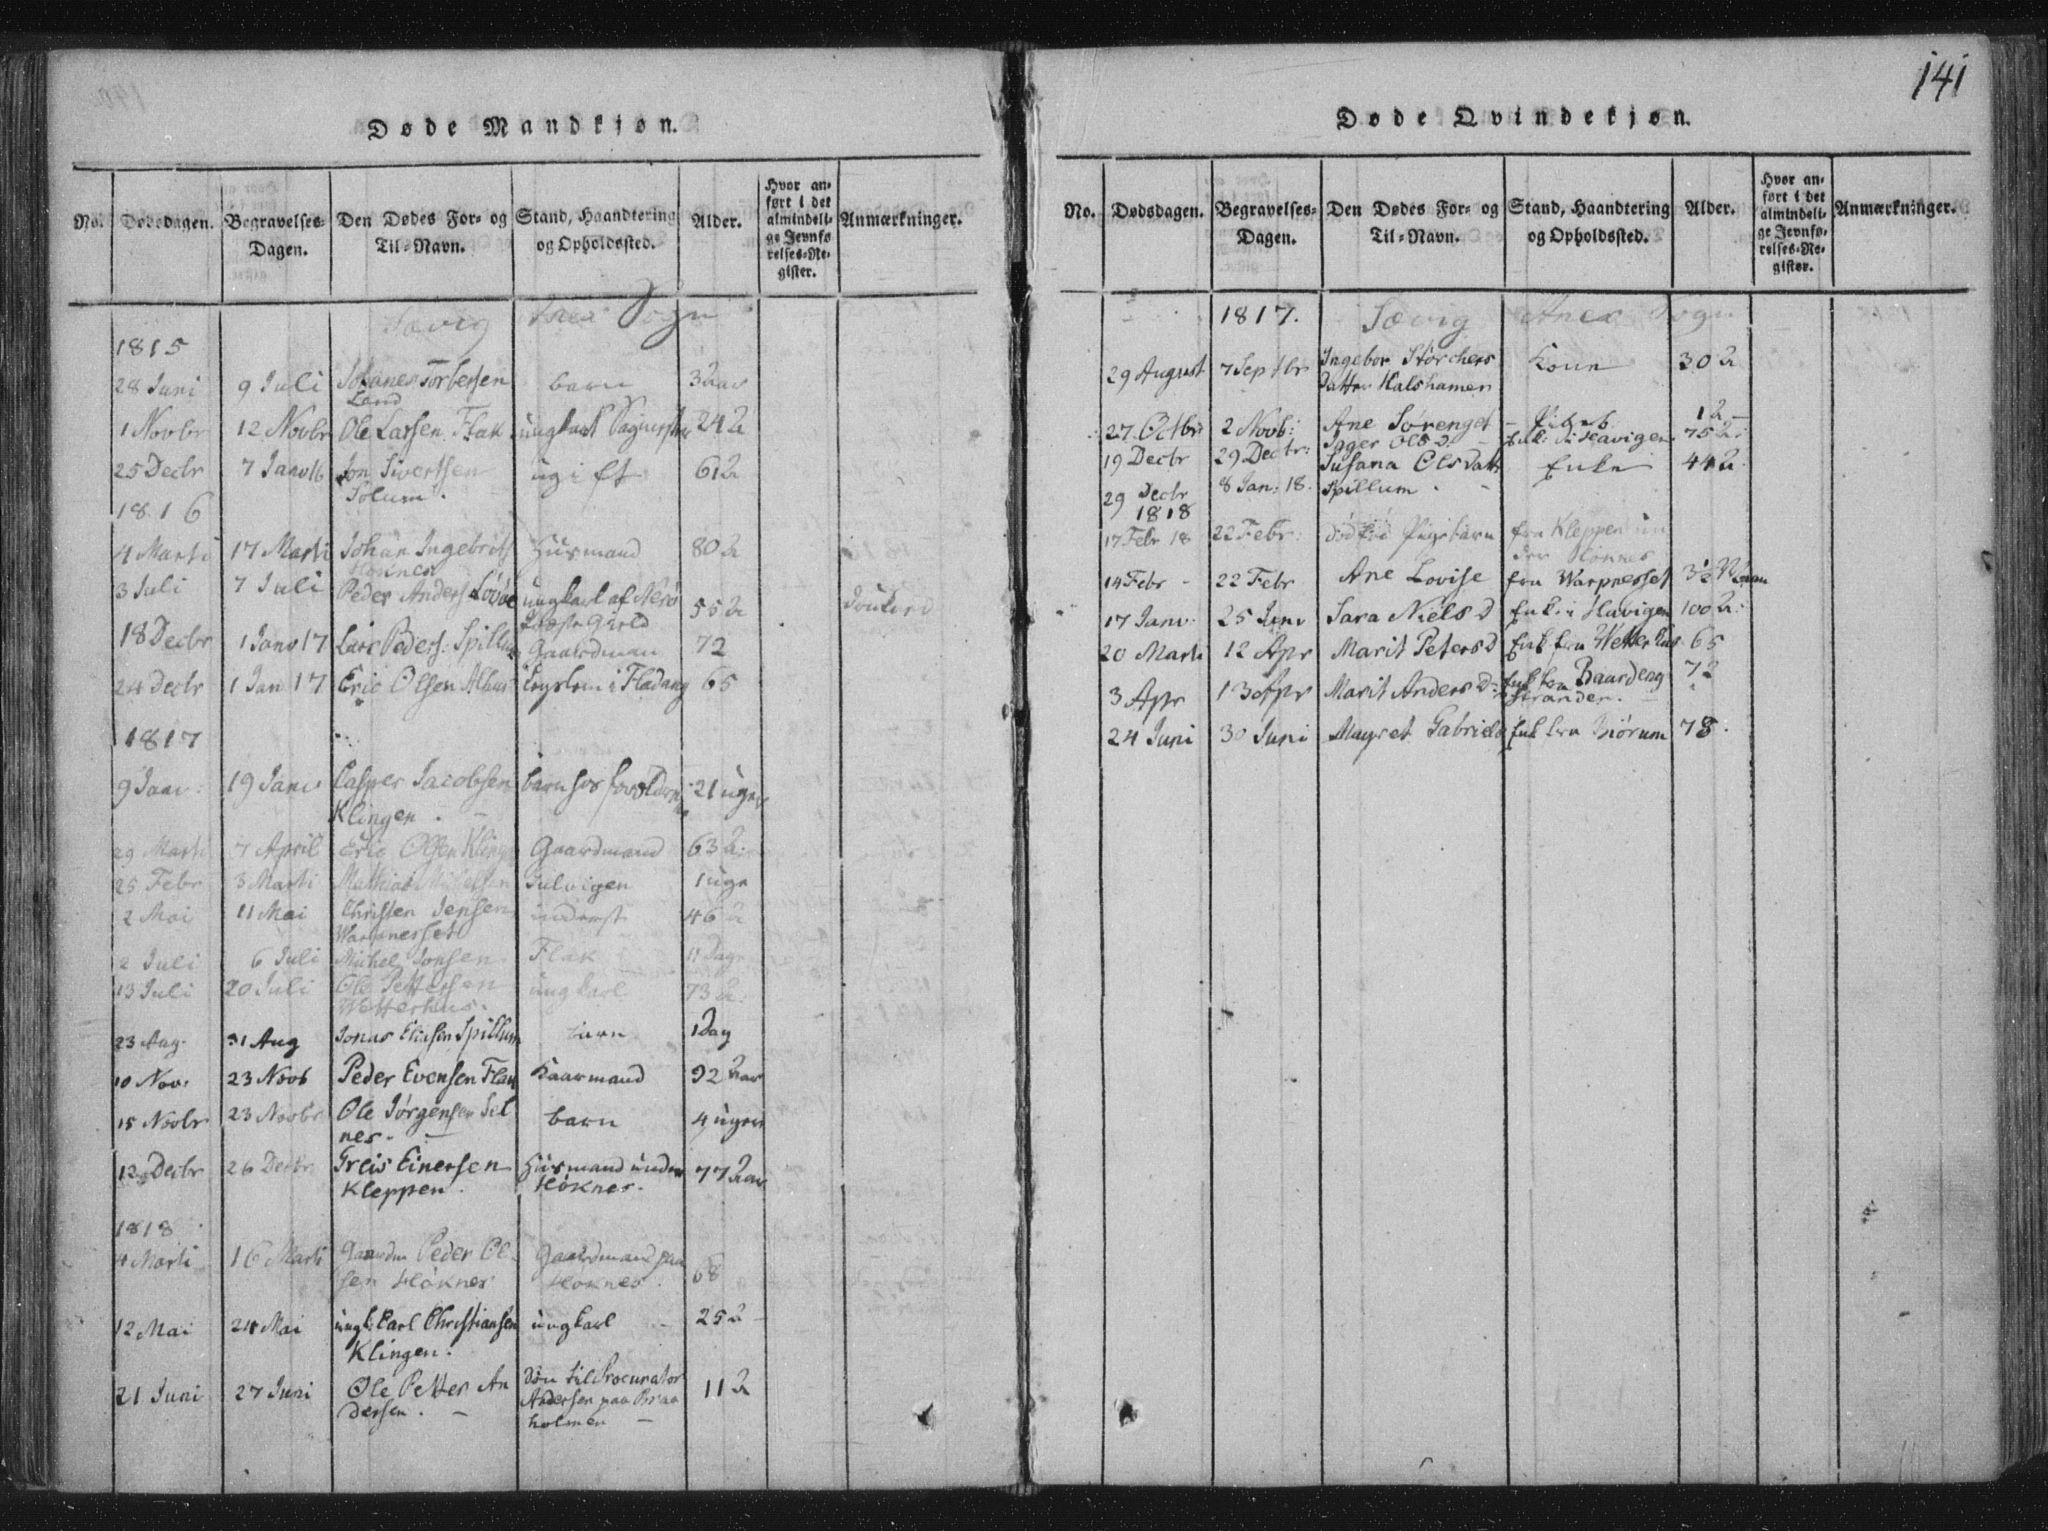 141
Døde Mandkjøn.
No. Dødsdagen. Begravelses-Dagen. Den Dødes For- og Til-Navn. Stand, Haandtering og Opholdssted. Alder. Hvor anført i det almindelige Jevnførelses-Register. Anmærkninger.
Sævig Anex Sogn
1815
28 Juni 9 Juli Johanes Torbersen Land barn 3 Aar
1 Novbr 12 Novbr Ole Larsen Flak ungkarl 24 A
25 Decbr 7 Janv 16 Jon Sivertsen Solum. ugift 61 A
1816
4 Marti 17 Marti Johan Ingebrits Høknes Husmand 80 A
3 Juli 7 Juli Peder Anders Løvøe ungkarl af Nerø 55 A
18 Decbr 1 Janv 17 Lars Peders: Spillum Gaardman 72
24 Decbr 1 Jan 17 Eric Olsen i Fladang 65
1817
9 Janv: 19 Janv Casper Jacobsen Klingen. barn hos forældrene 21 uger
29 Marti 7 April Eric Olsen Klingen Gaardmand 63 A:
25 Febr 3 Marti Mathias Michelsen Julvigen 1 uge
2 Mai 11 Mai Christen Jensen Warpnesset inderst 46 A
2 Juli 6 Juli Michel Jonsen Flak 11 Dage
13 Juli 20 Juli Ole Pettersen Wetterhus. ungkarl 73 A:
23 Aug. 31 Aug Jonas Eliasen Spillum barn 1 Dag
10 Nov: 23 Novb Peder Evensen Flak Kaarmand 92 Aar
15 Novbr 23 Novbr Ole Jørgensen Selnes. barn 4 uger
12 Decbr 26 Decbr Greis Einersen Kleppen. Husmand under Høknes. 77 Aar
1818
4 Marti 16 Marti Gaardm Peder Olsen Høknes Gaardmand paa Høknes. 68
12 Mai 24 Mai ungk: Carl Christiansen Klingen. ungkarl 25 A
21 Juni 27 Juni Ole Petter Andersen. Søn til Procurator Andersen paa Braaholmen 11 A
Døde Qvindekjøn.
No. Dødsdagen. Begravelses-Dagen. Den Dødes For- og Til-Navn. Stand, Haandtering og Opholdssted. Alder. Hvor anført i det almindelige Jevnførelses-Register. Anmærkninger.
1817. Sævig Anex Sogn
29 August 7 Septbr Ingebor Størchers Datter Halshamer Kone 30 A
27 Octbr 2 Novb: Ane Sørenget Pigeb 1 A
19 Decbr 29 Decbr: Igger Ols D. Enk: i Havigen 75 A:
29 Decbr 8 Jan: 18. Susana Olsdatr Spillum. Enke 44 A:
1818
17 Febr 18 22 Febr: Dødfød Pigebarn fra Kleppen under Høknes
14 Febr 22 Febr Ane Lovise fra Warpnesset 3½
17 Janv. 25 Janv Sara Niels D Enk: i Havigen 100 A:
20 Marti 12 Apr Marit Peters D Enk fra Wetterhus 65
3 Apr 13 Apr Marit Anders D: Enk fra Baardeng stranden. 72
24 Juni 30 Juni Magret Gabriels Enk fra Biørum 78.